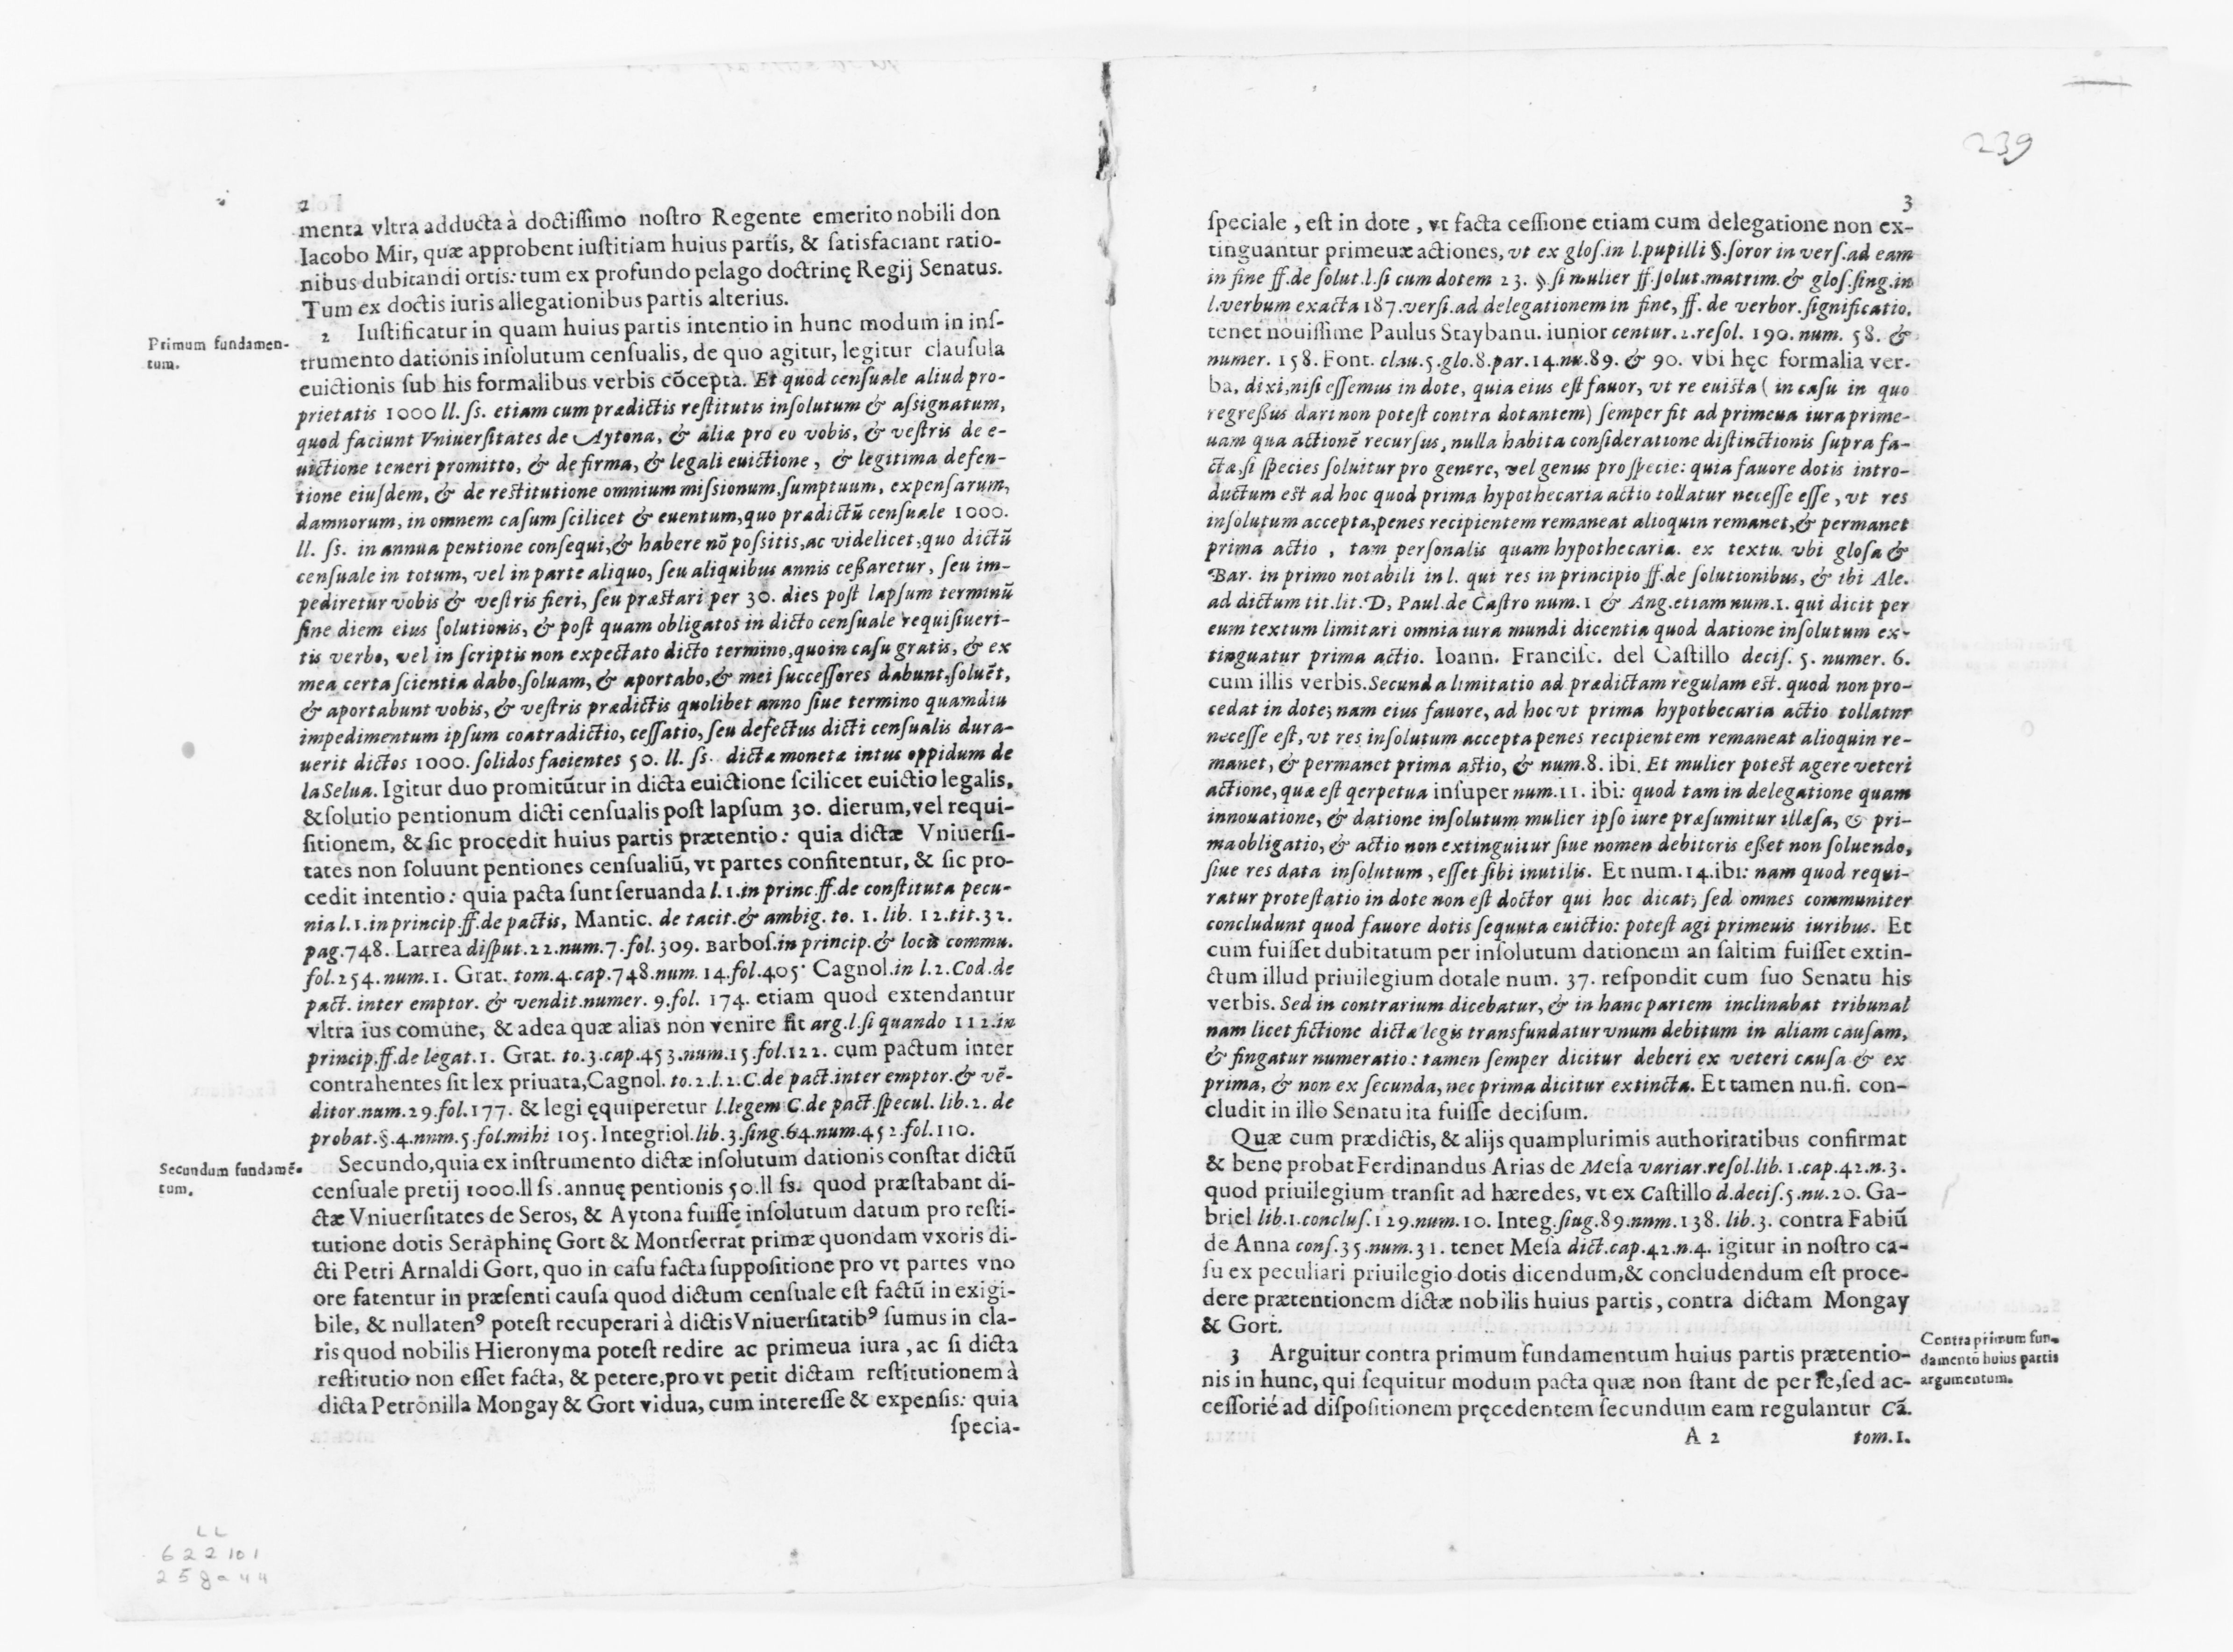 2
menta vltra adducta à doctissimo nostro Regente emerito nobili don
Iacobo Mir, quæ approbent iustitiam huius partis, & satisfaciant ratio-
nibus dubitandi ortis: tum ex profundo pelago doctrinę Regij Senatus.
Tum ex doctis iuris allegationibus partis alterius.
Primum fundamen-
tum.
2 Iustificatur in quam huius partis intentio in hunc modum in ins-
trumento dationis insolutum censualis, de quo agitur, legitur clausula
euictionis sub his formalibus verbis cõcepta. Et quod censuale aliud pro-
prietatis 1000 ll. ss. etiam cum prædictis restitutis insolutum & assignatum,
quod faciunt Vniuersitates de Aytona, & aliæ pro eo vobis, & vestris de e-
uictione teneri promitto, & de firma, & legali euictione, & legitima defen-
tione eiusdem, & de restitutione omnium missionum, sumptuum, expensarum,
damnorum, in omnem casum scilicet & euentum, quo prædictũ censuale 1000.
ll. ss. in annua pentione consequi, & habere nõ possitis, ac videlicet, quo dictũ
censuale in totum, vel in parte aliquo, seu aliquibus annis cessaretur, seu im-
pediretur vobis & vestris fieri, seu præstari per 30. dies post lapsum terminũ
sine diem eius solutionis, & post quam obligatos in dicto censuale requisiueri-
tis verbo, vel in scriptis non expectato dicto termino, quo in casu gratis, & ex
mea certa scientia dabo, soluam, & aportabo, & mei successores dabunt, soluẽt,
& aportabunt vobis, & vestris prædictis quolibet anno siue termino quamdiu
impedimentum ipsum contradictio, cessatio, seu defectus dicti censualis dura-
uerit dictos 1000. solidos facientes 50. ll. ss. dictæ monetæ intus oppidum de
la Selua. Igitur duo promitũtur in dicta euictione scilicet euictio legalis,
& solutio pentionum dicti censualis post lapsum 30. dierum, vel requi-
sitionem, & sic procedit huius partis prætentio: quia dictæ Vniuersi-
tates non soluunt pentiones censualiũ, vt partes confitentur, & sic pro-
cedit intentio: quia pacta sunt seruanda l. 1. in princ. ff. de constituta pecu-
nia l. 1. in princip. ff. de pactis, Mantic. de tacit. & ambig. to. 1. lib. 12. tit. 32.
pag. 748. Larrea disput. 22. num. 7. fol. 309. Barbos. in princip. & locis commu.
fol. 254. num. 1. Grat. tom. 4. cap. 748. num. 14. fol. 405. Cagnol. in l. 2. Cod. de
pact. inter emptor. & vendit. numer. 9. fol. 174. etiam quod extendantur
vltra ius comune, & adea quæ alias non venire fit arg. l. si quando 112. in
princip. ff. de legat. 1. Grat. to. 3. cap. 453. num. 15. fol. 122. cum pactum inter
contrahentes sit lex priuata, Cagnol. to. 2. l. 2. C. de pact. inter emptor. & vẽ-
ditor. num. 29. fol. 177. & legi ęquiperetur l. legem C. de pact. specul. lib. 2. de
probat. §. 4. nnm. 5. fol. mihi 105. Integriol. lib. 3. sing. 64. num. 452. fol. 110.
Secundum fundamẽ-
tum.
Secundo, quia ex instrumento dictæ insolutum dationis constat dictũ
censuale pretij 1000. ll ss. annuę pentionis 50. ll ss. quod præstabant di-
ctæ Vniuersitates de Seros, & Aytona fuisse insolutum datum pro resti-
tutione dotis Seràphinę Gort & Montserrat primæ quondam vxoris di-
cti Petri Arnaldi Gort, quo in casu facta suppositione pro vt partes vno
ore fatentur in præsenti causa quod dictum censuale est factũ in exigi-
bile, & nullatenꝰ potest recuperari à dictis Vniuersitatibꝰ sumus in cla-
ris quod nobilis Hieronyma potest redire ac primeua iura, ac si dicta
restitutio non esset facta, & petere, pro vt petit dictam restitutionem à
dicta Petronilla Mongay & Gort vidua, cum interesse & expensis: quia
specia-
LL
622101
258a44
239
3
speciale, est in dote, vt facta cessione etiam cum delegatione non ex-
tinguantur primeuæ actiones, vt ex glos. in l. pupilli §. soror in vers. ad eam
in fine ff. de solut. l. si cum dotem 23. §. si mulier ff. solut. matrim. & glos. sing. in
l. verbum exacta 187. versi. ad delegationem in fine, ff. de verbor. significatio.
tenet nouissime Paulus Staybanu. iunior centur. 2. resol. 190. num. 58. &
numer. 158. Font. clau. 5. glo. 8. par. 14. nu. 89. & 90. vbi hęc formalia ver-
ba, dixi, nisi essemus in dote, quia eius est fauor, vt re euista ( in casu in quo
regressus dari non potest contra dotantem) semper fit ad primeua iura prime-
uam qua actionẽ recursus, nulla habita consideratione distinctionis supra fa-
ctæ, si species soluitur pro genere, vel genus pro specie: quia fauore dotis intro-
ductum est ad hoc quod prima hypothecaria actio tollatur necesse esse, vt res
insolutum accepta, penes recipientem remaneat alioquin remanet, & permanet
prima actio, tam personalis quam hypothecaria. ex textu. vbi glosa &
Bar. in primo notabili in l. qui res in principio ff. de solutionibus, & ibi Ale.
ad dictum tit. lit. D, Paul. de Castro num. 1 & Ang. etiam num. 1. qui dicit per
eum textum limitari omnia iura mundi dicentia quod datione insolutum ex-
tinguatur prima actio. Ioann. Francisc. del Castillo decis. 5. numer. 6.
cum illis verbis. Secunda limitatio ad prædictam regulam est. quod non pro-
cedat in dote; nam eius fauore, ad hoc vt prima hypothecaria actio tollatur
necesse est, vt res insolutum accepta penes recipientem remaneat alioquin re-
manet, & permanet prima actio, & num. 8. ibi. Et mulier potest agere veteri
actione, quæ est qerpetua insuper num. 11. ibi: quod tam in delegatione quam
innouatione, & datione insolutum mulier ipso iure præsumitur illæsa, & pri-
ma obligatio, & actio non extinguitur siue nomen debitoris esset non soluendo,
siue res data insolutum, esset sibi inutilis. Et num. 14. ibi: nam quod requi-
ratur protestatio in dote non est doctor qui hoc dicat; sed omnes communiter
concludunt quod fauore dotis sequuta euictio: potest agi primeuis iuribus. Et
cum fuisset dubitatum per insolutum dationem an saltim fuisset extin-
ctum illud priuilegium dotale num. 37. respondit cum suo Senatu his
verbis. Sed in contrarium dicebatur, & in hanc partem inclinabat tribunal
nam licet fictione dictæ legis transfundatur vnum debitum in aliam causam,
& fingatur numeratio: tamen semper dicitur deberi ex veteri causa & ex
prima, & non ex secunda, nec prima dicitur extincta. Et tamen nu. fi. con-
cludit in illo Senatu ita fuisse decisum.
Quæ cum prædictis, & alijs quamplurimis authoritatibus confirmat
& bene probat Ferdinandus Arias de Mesa variar. resol. lib. 1. cap. 42. n. 3.
quod priuilegium transit ad hæredes, vt ex Castillo d. decis. 5. nu. 20. Ga-
briel lib. 1. conclus. 129. num. 10. Integ. siug. 89. nnm. 138. lib. 3. contra Fabiũ
de Anna cons. 35. num. 31. tenet Mesa dict. cap. 42. n. 4. igitur in nostro ca-
su ex peculiari priuilegio dotis dicendum, & concludendum est proce-
dere prætentionem dictæ nobilis huius partis, contra dictam Mongay
& Gort.
Contra primum fun-
damentũ huius partis
argumentum.
3 Arguitur contra primum fundamentum huius partis prætentio-
nis in hunc, qui sequitur modum pacta quæ non stant de per se, sed ac-
cessorié ad dispositionem pręcedentem secundum eam regulantur Cã.
A 2 tom. 1.